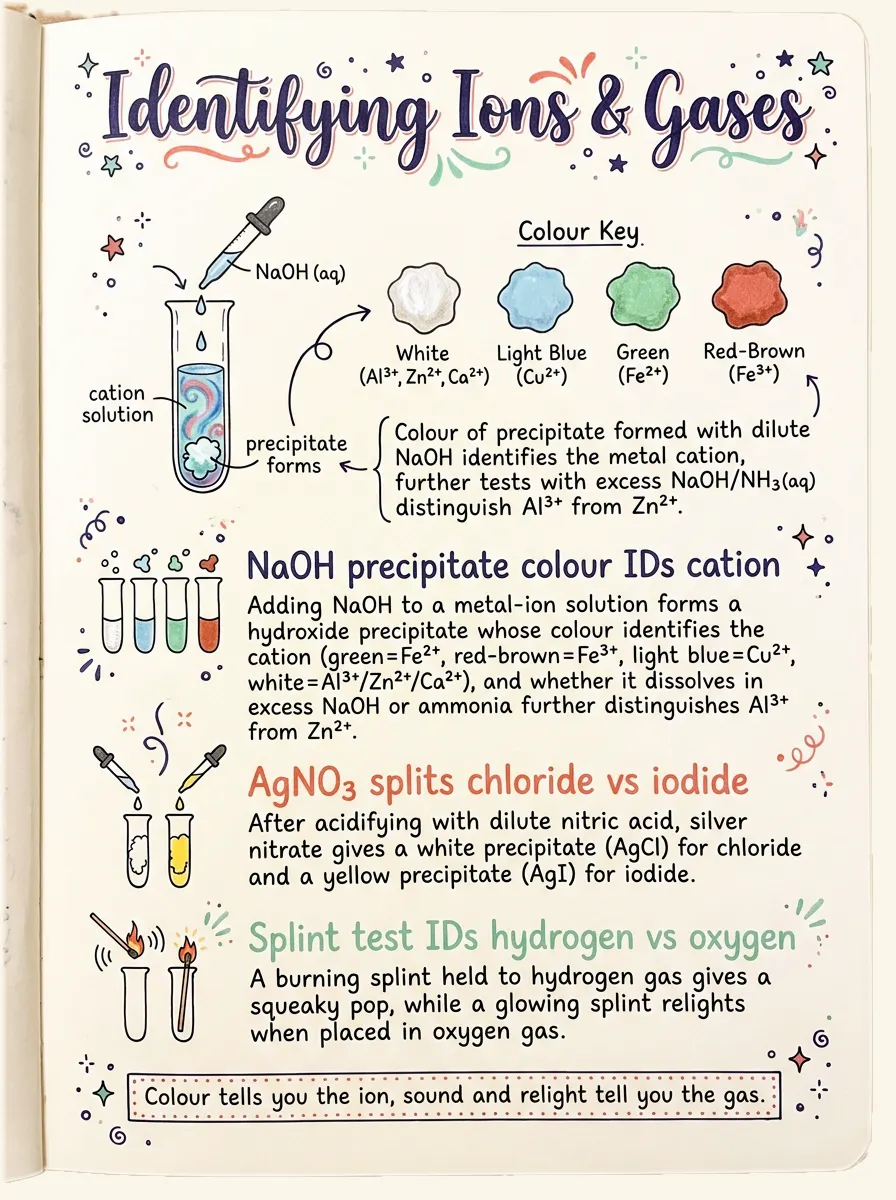 Identifying Ions & Gases
NaOH (aq)
cation
solution
precipitate
forms
Colour Key
White
(Al³⁺, Zn²⁺, Ca²⁺)
Light Blue
(Cu²⁺)
Green
(Fe²⁺)
Red-Brown
(Fe³⁺)
Colour of precipitate formed with dilute
NaOH identifies the metal cation,
further tests with excess NaOH/NH₃(aq)
distinguish Al³⁺ from Zn²⁺.
NaOH precipitate colour IDs cation
Adding NaOH to a metal-ion solution forms a
hydroxide precipitate whose colour identifies the
cation (green=Fe²⁺, red-brown=Fe³⁺, light blue=Cu²⁺,
white=Al³⁺/Zn²⁺/Ca²⁺), and whether it dissolves in
excess NaOH or ammonia further distinguishes Al³⁺
from Zn²⁺.
AgNO₃ splits chloride vs iodide
After acidifying with dilute nitric acid, silver
nitrate gives a white precipitate (AgCl) for chloride
and a yellow precipitate (AgI) for iodide.
Splint test IDs hydrogen vs oxygen
A burning splint held to hydrogen gas gives a
squeaky pop, while a glowing splint relights
when placed in oxygen gas.
Colour tells you the ion, sound and relight tell you the gas.